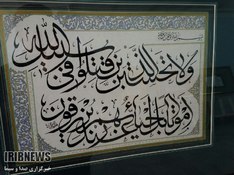 ولا تحسبن الذین قتلوا فی سبیل الله
امواتا بل احیاء عند ربهم یرزقون
IRIBNEWS
خبرگزاری صدا و سیما